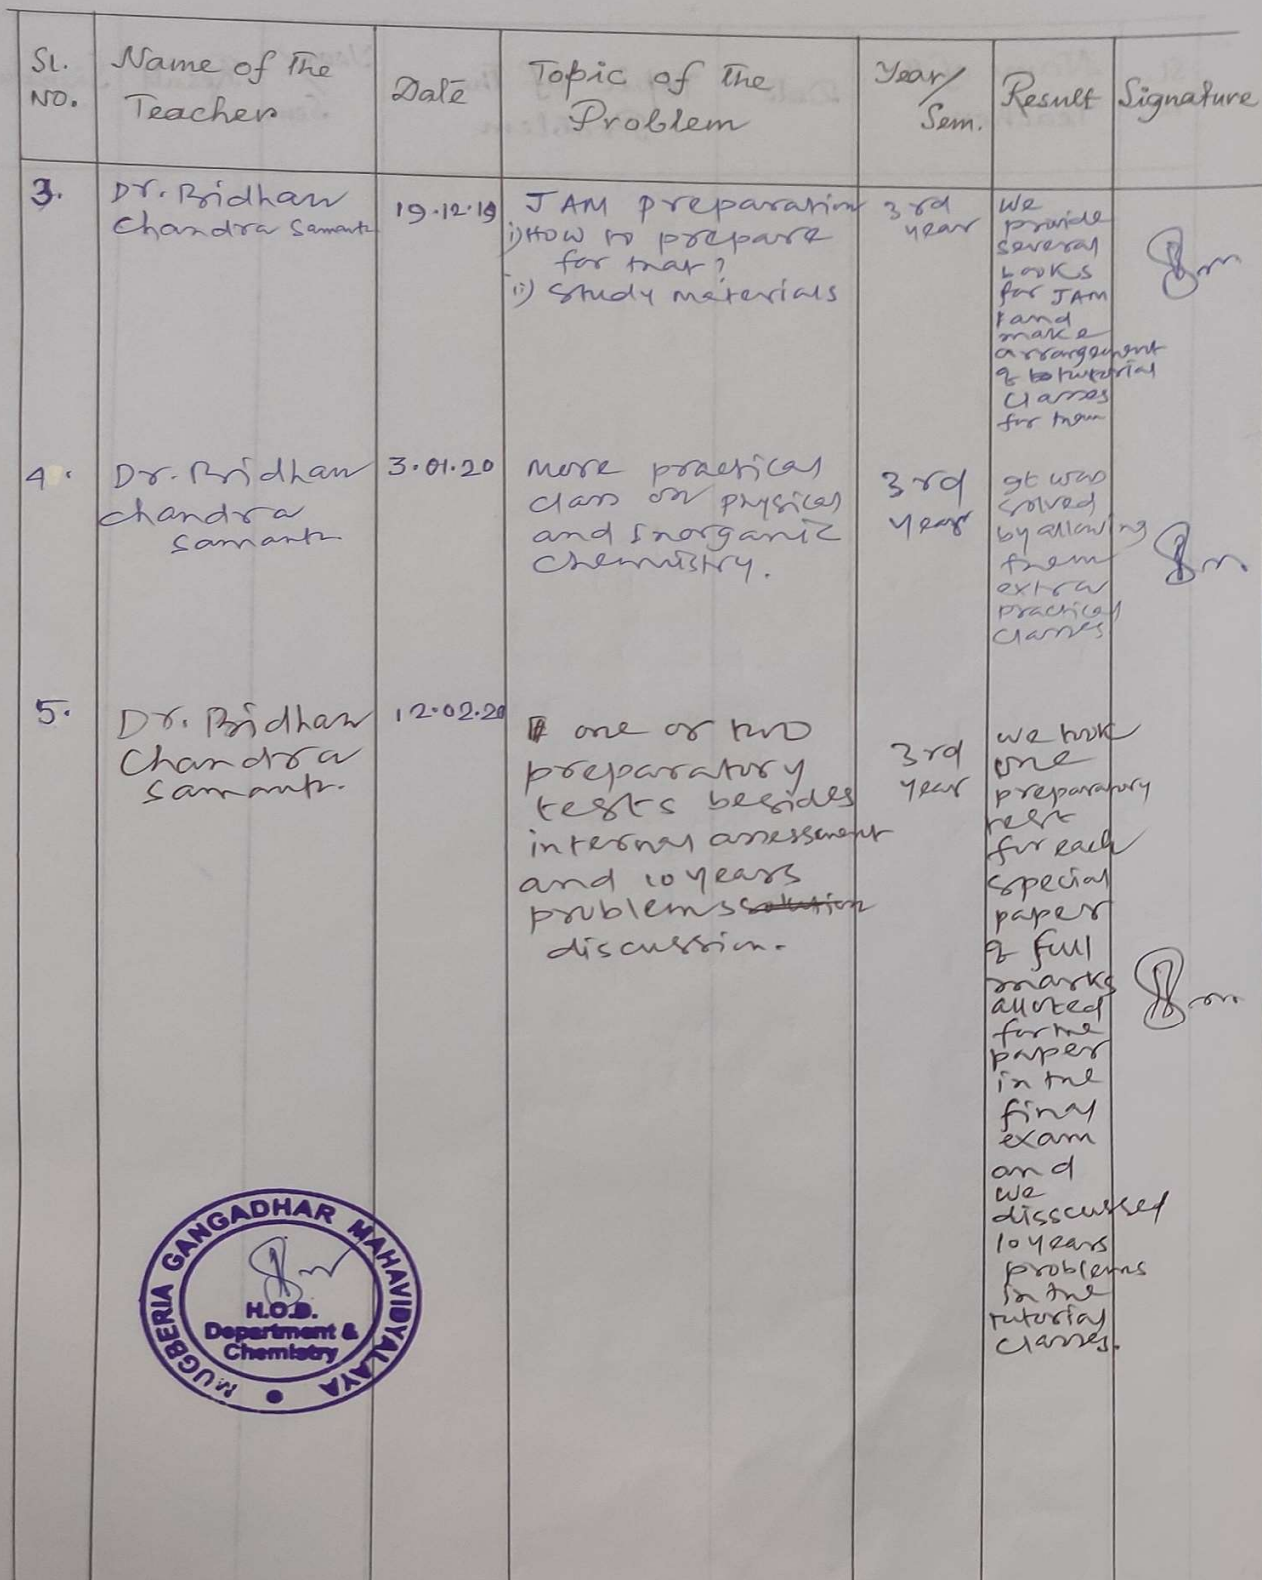 Sl. NO.
Name of The Teacher
Date
Topic of The Problem
Year/ Sem.
Result
Signature
3.
Dr. Bidhan
Chandra Samanta
19.12.19
JAM preparation
i) How to prepare
for that?
ii) Study materials
3rd
year
We
provide
several
books
for JAM
and
make
arrangement
of tutorial
classes
for them
4.
Dr. Bidhan
Chandra
Samanta
3.01.20
More practical
class on physical
and Inorganic
chemistry.
3rd
year
It was
solved
by allowing
them
extra
practical
classes
5.
Dr. Bidhan
Chandra
Samanta.
12.02.20
one or two
preparatory
tests besides
internal assessment
and 10 years
problems solution
discussion.
3rd
year
we took
one
preparatory
test
for each
special
paper
of full
marks
alloted
for the
paper
in the
final
exam
and
we
disscussed
10 years
problems
in the
tutorial
classes.
MUGBERIA GANGADHAR MAHAVIDYALAYA
H.O.D.
Department &
Chemistry